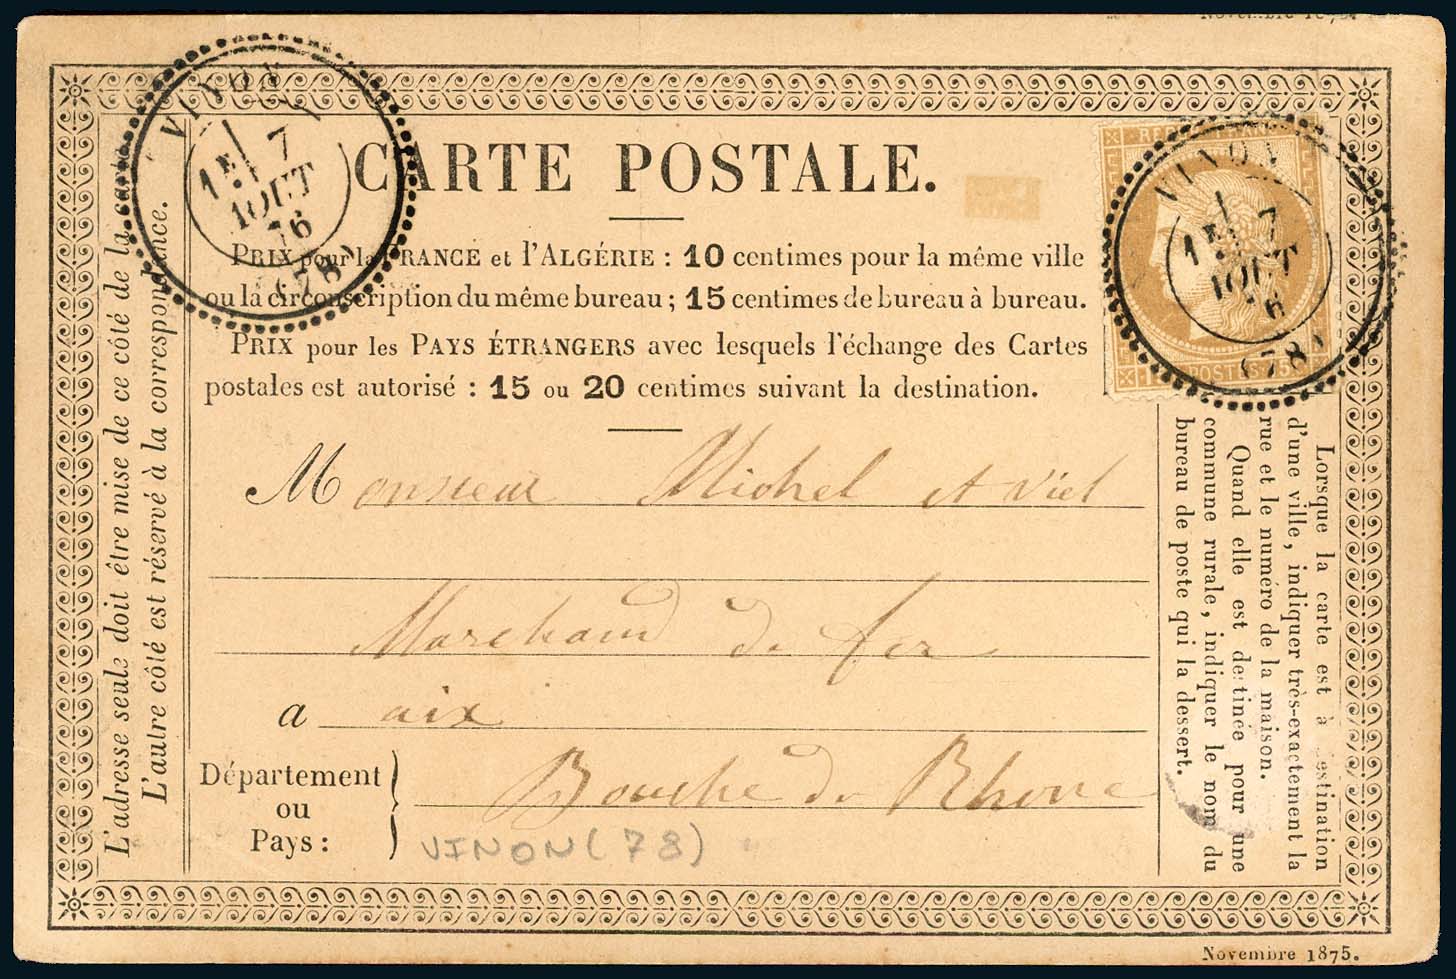 VINON
1E 7
AOUT
76
(78)
CARTE POSTALE.
PRIX pour la FRANCE et l'ALGÉRIE : 10 centimes pour la même ville
ou la circonscription du même bureau ; 15 centimes de bureau à bureau.
PRIX pour les PAYS ÉTRANGERS avec lesquels l'échange des Cartes
postales est autorisé : 15 ou 20 centimes suivant la destination.
VINON
1E 7
AOUT
76
(78)
POSTES
L'adresse seule doit être mise de ce côté de la carte
L'autre côté est réservé à la correspondance.
Monsieur Michel et Viel
Marchand de fer
a aix
Département
ou
Pays :
Bouche du Rhone
VINON (78)
Lorsque la carte est à destination
d'une ville, indiquer très-exactement la
rue et le numéro de la maison.
Quand elle est destinée pour une
commune rurale, indiquer le nom du
bureau de poste qui la dessert.
Novembre 1875.